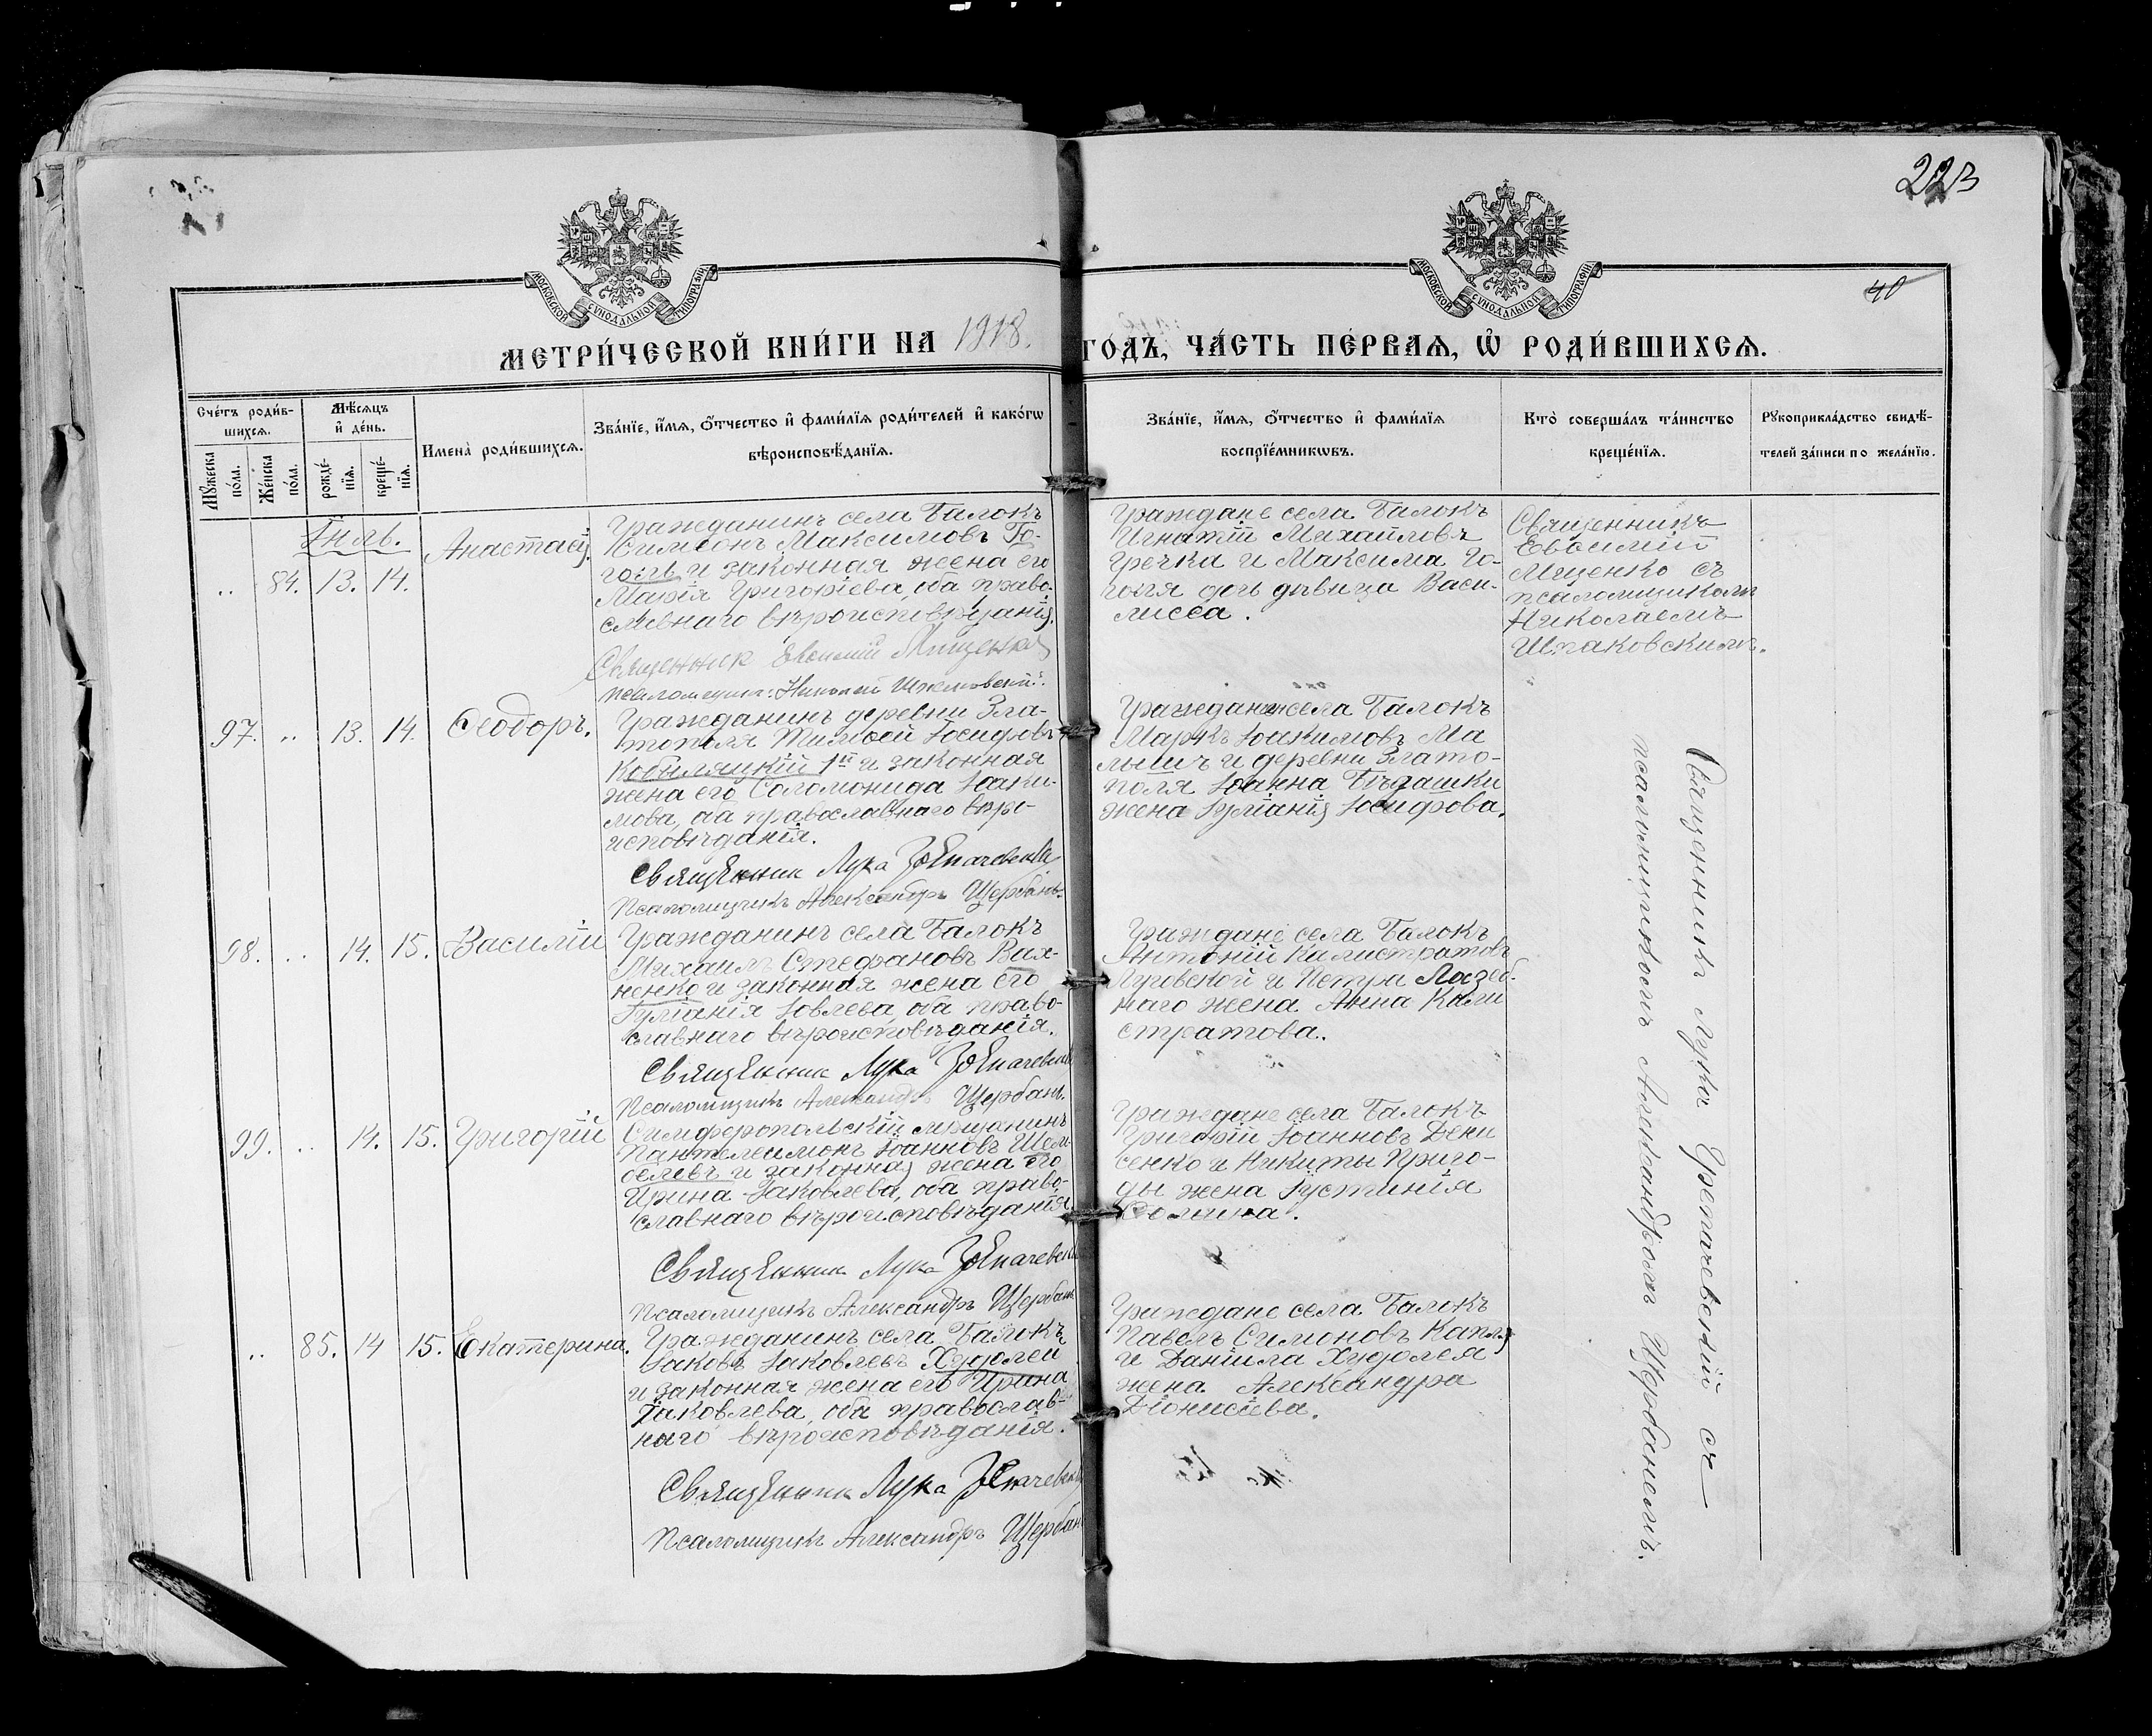 223
40
МОСКОВСКОЙ СѴНОДАЛЬНОЙ ТИПОГРАФІИ
МОСКОВСКОЙ СѴНОДАЛЬНОЙ ТИПОГРАФІИ
МЕТРИ́ЧЕСКОЙ КНИ́ГИ НА 1918. ГОДЪ, ЧА́СТЬ ПЕ́РВАѦ, Ѡ҆ РОДИ́ВШИХСѦ.
Сче́тъ роди́в-
шихсѧ.
Мꙋ́жеска по́ла.
Же́нска по́ла.
Мѣ́сѧцъ
и҆ де́нь.
рожде́-
нїѧ.
креще́-
нїѧ.
Имена̀ роди́вшихсѧ.
Зва́нїе, и҆́мѧ, ѻ҆́тчество и҆ фами́лїѧ роди́телей и҆ како́гѡ
вѣроисповѣ́данїѧ.
Зва́нїе, и҆́мѧ, ѻ҆́тчество и҆ фами́лїѧ
воспрїе́мникѡвъ.
Кто̀ соверша́лъ та́инство
креще́нїѧ.
Рꙋкоприкла́дство свидѣ́-
телей за́писи по жела́нїю.
Іюль.
.. 84. 13. 14.
Анастасія.
Гражданинъ села Балокъ
Симеонъ Максимовъ Го-
голь и законная жена его
Марія Григоріева, оба право-
славнаго вѣроисповѣданія.
Священник Евсимій Мищенко
псаломщикъ: Николай Шпаковскій.
Граждане села Балокъ
Игнатій Михайловъ
Гречка и Максима Го-
голя дочь дѣвица Васи-
лисса.
Священникъ
Евсимій
Мищенко съ
псаломщикомъ
Николаемъ
Шпаковскимъ.
97. .. 13. 14. Ѳеодоръ.
Гражданинъ деревни Зла-
тополя Тимоѳей Іосифовъ
Кобыляцкій 1й и законная
жена его Соломонида Іоаки-
мова, оба православнаго вѣро-
исповѣданія.
Священник Лука
Псаломщикъ Александръ Щербань.
Граждане села Балокъ
Маркъ Іоакимовъ Ма
лышъ и деревни Злато-
поля Іоанна
жена Іуліанія Іосифова.
98. .. 14. 15. Василій
Гражданинъ села Балокъ
Михаилъ Стефановъ Вах-
ненко и законная жена его
Іуліанія Іовлева, оба право-
славнаго вѣроисповѣданія.
Священник Лука
Псаломщикъ Александръ Щербань.
Граждане села Балокъ
Антоній Калистратовъ
Луговской и Петра Лазеб-
наго жена Анна Кали
стратова.
99. .. 14. 15. Григорій
Симферопольскій мѣщанинъ
Пантелеимонъ Іоанновъ
и законная жена его
Ирина Іаковлева, оба право-
славнаго вѣроисповѣданія.
Священник Лука
Псаломщикъ Александръ Щербань
Граждане села Балокъ
Григорій Іоанновъ Дени
сенко и Никиты Приго-
ды жена Іустинія
Ѳомина.
.. 85. 14 15. Екатерина.
Гражданинъ села Балокъ
Іаковъ Іаковлевъ Худолей
и законная жена его Ирина
Іаковлева, оба православ-
наго вѣроисповѣданія.
Священник Лука
Псаломщикъ Александръ Щербань
Граждане села Балокъ
Павелъ Симоновъ
и Даніила Худолея
жена Александра
Діонисіева.
Священникъ Лука съ
псаломщикомъ Александромъ Щербанемъ.